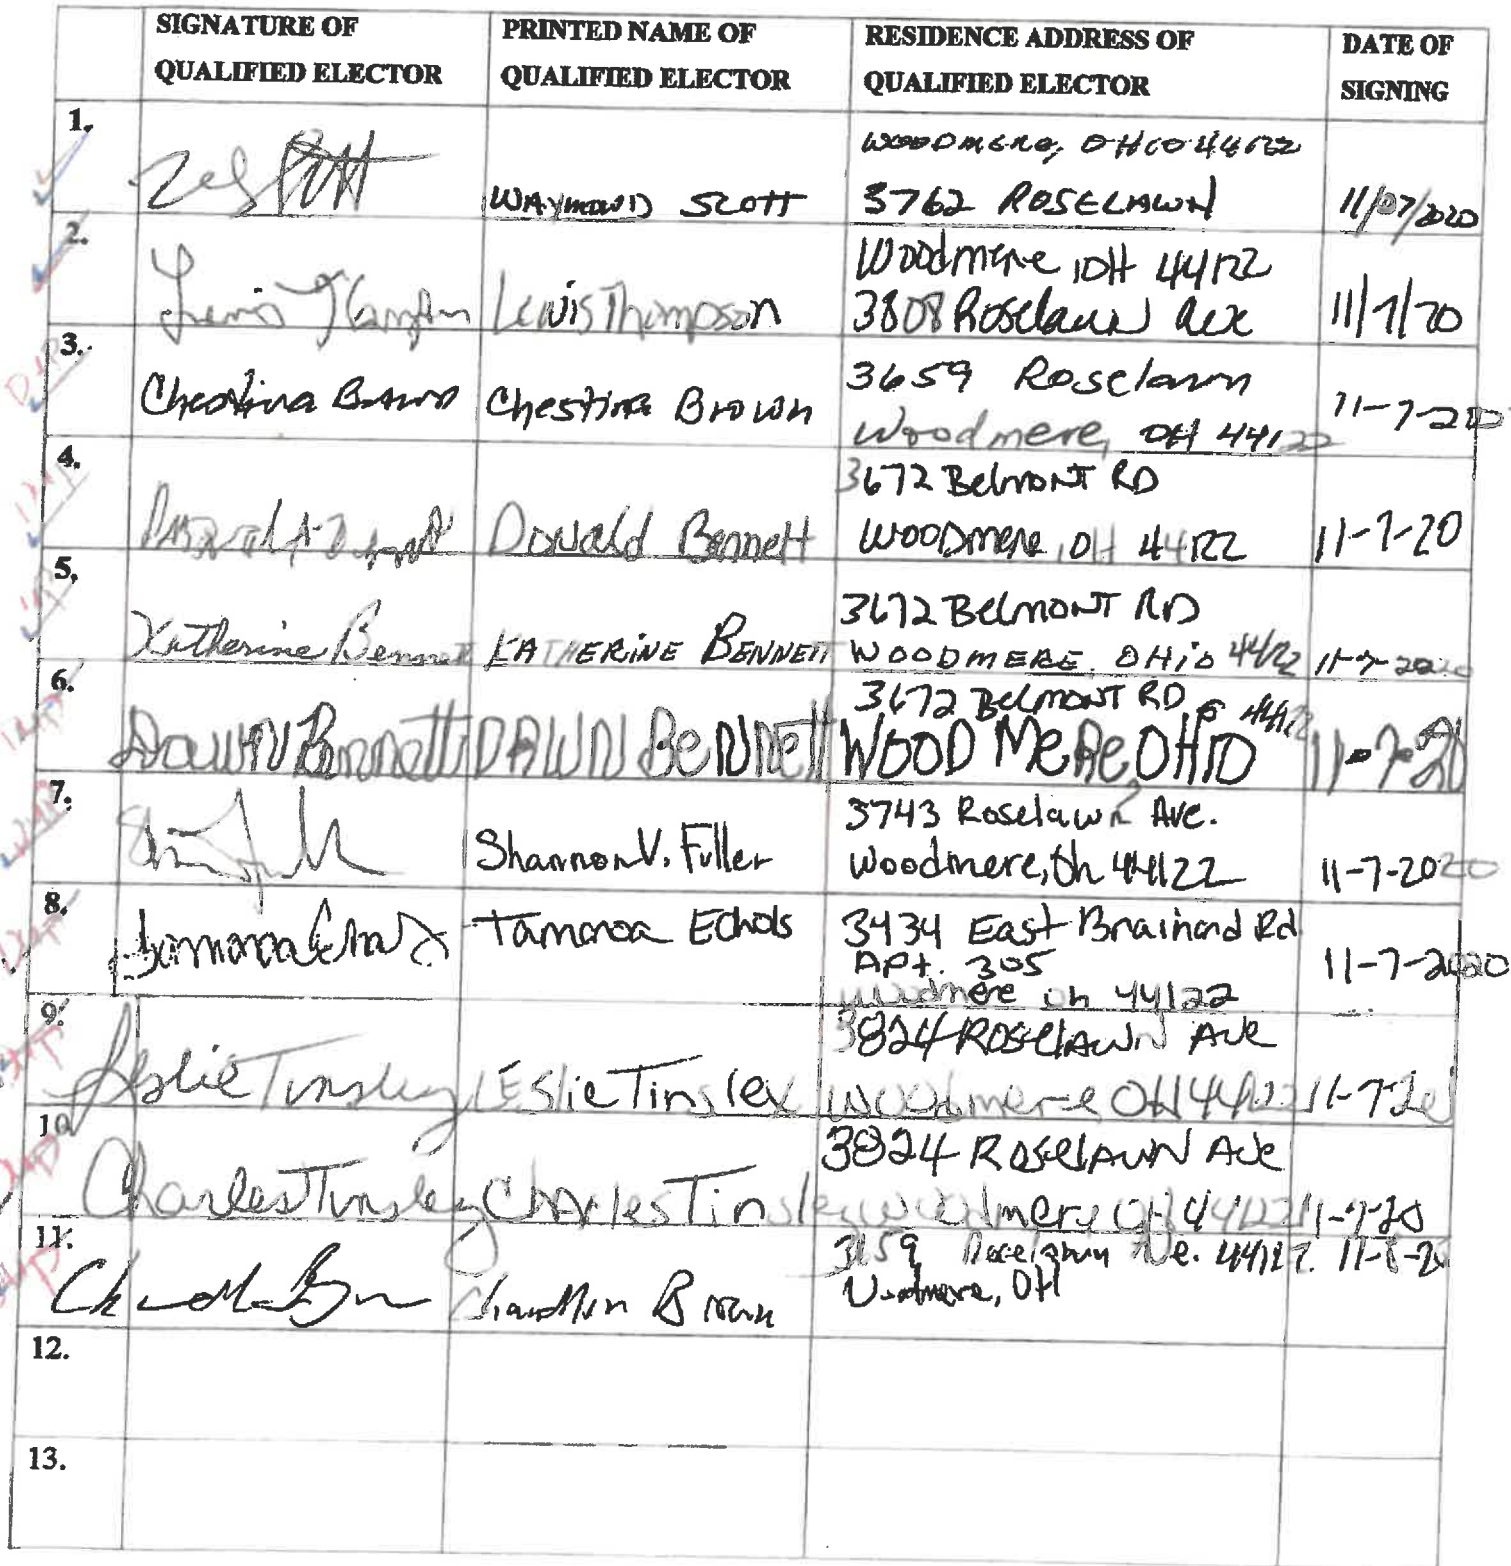 SIGNATURE OF QUALIFIED ELECTOR
PRINTED NAME OF QUALIFIED ELECTOR
RESIDENCE ADDRESS OF QUALIFIED ELECTOR
DATE OF SIGNING
1.
WAYMOND SCOTT
WOODMERE, OHIO 44122
3762 ROSELAWN
11/07/2020
2.
Lewis Thompson
Lewis Thompson
Woodmere, OH 44122
3808 Roselawn Ave
11/7/20
3.
Chestina Brown
Chestina Brown
3659 Roselawn
Woodmere, OH 44122
11-7-20
4.
Donald Bennett
3672 Belmont RD
Woodmere, OH 44122
11-7-20
5.
Katherine Bennett
KATHERINE BENNETT
3672 Belmont RD
WOODMERE, OHIO 44122
11-7-2020
6.
Dawn Bennett
DAWN BeNNett
3672 Belmont RD
WOODMeRe OHIO 44122
11-7-20
7.
Shannon V. Fuller
3743 Roselawn Ave.
Woodmere, Oh 44122
11-7-2020
8.
Tamara Echols
3434 East Brainard Rd
Apt. 305
Woodmere oh 44122
11-7-2020
9.
Leslie Tinsley
LEslie Tinsley
3824 ROSELAWN Ave
Woodmere OH 44122
11-7-20
10.
Charles Tinsley
Charles Tinsley
3824 ROSELAWN Ave
Woodmere OH 44122
11-7-20
11.
Brown
3659 Roselawn Ave. 44122
Woodmere, OH
12.
13.